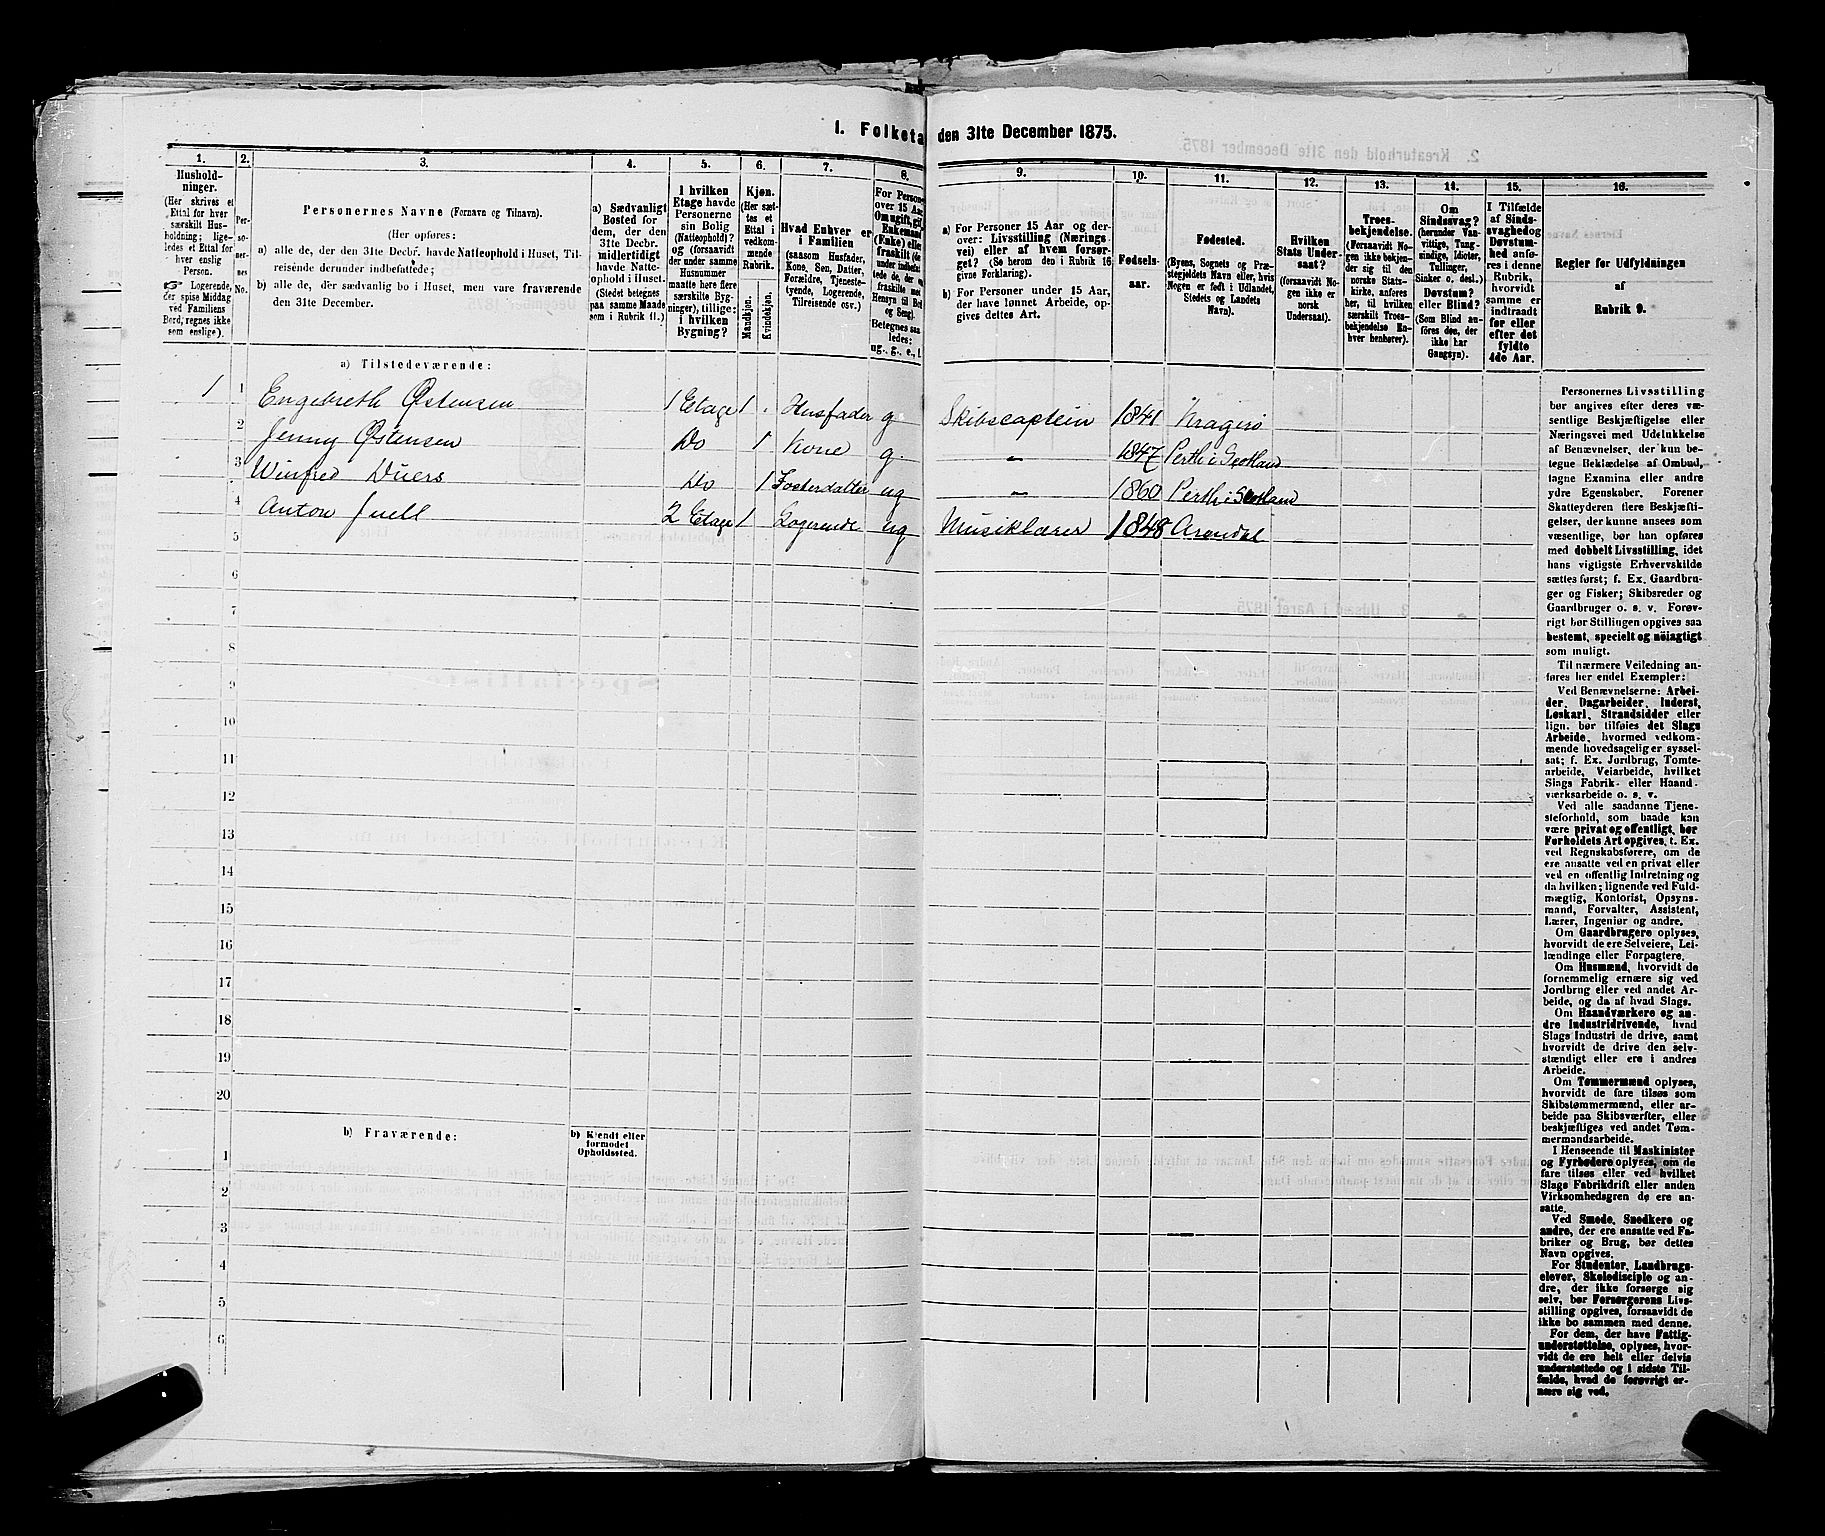 1. Folketa den 31te December 1875.
1.
Hushold-
ninger.
(Her skrives et
Ettal for hver
særskilt Hus-
holdning; lige-
ledes et Ettal for
hver enslig
Person.
☞ Logerende,
der spise Middag
ved Familiens
Bord, regnes ikke
som enslige).
2.
Per-
so-
ner-
nes
No.
3.
Personernes Navne (Fornavn og Tilnavn).
(Her opføres:
a) alle de, der den 31te Decbr. havde Natteophold i Huset, Til-
reisende derunder indbefattede;
b) alle de, der sædvanlig bo i Huset, men vare fraværende
den 31te December.
4.
a) Sædvanligt
Bosted for
dem, der den
31te Decbr.
midlertidigt
havde Natte-
ophold i Huset.
(Stedet betegnes
paa samme Maade
som i Rubrik 11.)
5.
I hvilken
Etage havde
Personerne
sin Bolig
(Natteophold)?
og (forsaavidt
der under samme
Husnummer
maatte høre flere
særskilte Byg-
ninger), tillige:
i hvilken
Bygning?
6.
Kjøn.
(Her sæt-
tes et
Ettal i
vedkom-
mende
Rubrik.
Mandkjøn.
Kvindekjøn.
7.
Hvad Enhver er
i Familien
(saasom Husfader,
Kone, Søn, Datter,
Forældre, Tjeneste-
tyende, Logerende,
Tilreisende osv.)
8.
For Persone
over 15 Aar
Om ugift, gif
Enkemand
(Enke) eller
fraskilt
ug., g., e., f.
9.
a) For Personer 15 Aar og der-
over: Livsstilling (Nærings-
vei) eller af hvem forsør-
get? (Se herom den i Rubrik 16
givne Forklaring).
b) For Personer under 15 Aar,
der have lønnet Arbeide, op-
gives dettes Art.
10.
Fødsels-
aar.
11.
Fødested.
(Byens, Sognets og Præ-
stegjeldets Navn eller, hvis
Nogen er født i Udlandet,
Stedets og Landets
Navn).
12.
Hvilken
Stats Under-
saat?
(forsaavidt No-
gen ikke er
norsk
Undersaat).
13.
Troes-
bekjendelse.
(Forsaavidt No-
gen ikke bekjen-
der sig til den
norske Stats-
kirke, anføres
her, til hvilken
særskilt Troes-
bekjendelse En-
hver henhører).
14.
Om
Sindssvag?
(herunder Van-
vittige, Tung-
sindige, Idioter,
Tullinger,
Sinker o. desl.)
Døvstum?
eller Blind?
(Som Blind an-
føres den, der
ikke har
Gangsyn).
15.
I Tilfælde
af Sinds-
svaghed og
Døvstum-
hed anfø-
res i denne
Rubrik,
hvorvidt
samme er
indtraadt
før eller
efter det
fyldte
4de Aar.
16.
Regler for Udfyldningen
af
Rubrik 9.
a) Tilstedeværende:
1 1 Engebreth Østensen 1 Etage 1 Husfader g Skibscaptein 1841 Kragerø
2 Jenny Østensen Do 1 Kone g - 1847 Perth i Scotland
3 Winfred Duers Do 1 Fosterdatter ug - 1860 Perth i Scotland
4 Anton Juell 2 Etage 1 Logerende ug Musiklærer 1848 Arendal
5
6
7
8
9
10
11
12
13
14
15
16
17
18
19
20
b) Fraværende:
b) Kjendt eller
formodet
Opholdssted.
1
2
3
4
5
6
Personernes Livsstilling
bør angives efter deres væ-
sentlige Beskjæftigelse eller
Næringsvei med Udelukkelse
af Benævnelser, der kun be-
tegne Beklædelse af Ombud,
tagne Examina eller andre
ydre Egenskaber. Forener
Skatteyderen flere Beskjæfti-
gelser, der kunne ansees som
væsentlige, bør han opføres
med dobbelt Livsstilling, idet
hans vigtigste Erhvervskilde
sættes først; f. Ex. Gaardbru-
ger og Fisker; Skibsreder og
Gaardbruger o. s. v. Forøv-
rigt bør Stillingen opgives saa
bestemt, specielt og nøiagtigt
som muligt.
Til nærmere Veiledning an-
føres her endel Exempler:
Ved Benævnelserne: Arbei-
der, Dagarbeider, Inderst,
Løskarl, Strandsidder eller
lign. bør tilføies det Slags
Arbeide, hvormed vedkom-
mende hovedsagelig er syssel-
sat; f. Ex. Jordbrug, Tomte-
arbeide, Veiarbeide, hvilket
Slags Fabrik- eller Haand-
værksarbeide o. s. v.
Ved alle saadanne Tjene-
steforhold, som baade kan
være privat og offentligt, bør
Forholdets Art opgives, f. Ex.
ved Regnskabsførere, om de
ere ansatte ved en privat eller
ved en offentlig Indretning og
da hvilken; lignende ved Fuld-
mægtig, Kontorist, Opsyns-
mand, Forvalter, Assistent,
Lærer, Ingeniør og andre.
Om Gaardbrugere oplyses,
hvorvidt de ere Selveiere, Lei-
lændinge eller Forpagtere.
Om Husmænd, hvorvidt de
fornemmelig ernære sig ved
Jordbrug eller ved andet Ar-
beide, og da af hvad Slags.
Om Haandværkere og an-
dre Industridrivende, hvad
Slags Industri de drive, samt
hvorvidt de drive den selv-
stændigt eller ere i andres
Arbeide.
Om Tømmermænd oplyses,
hvorvidt de fare tilsøs som
Skibstømmermænd, eller ar-
beide paa Skibsværfter, eller
beskjæftiges ved andet Tøm-
mermandsarbeide.
I Henseende til Maskinister
og Fyrbødere oplyses, om de
fare tilsøs eller ved hvilket
Slags Fabrikdrift eller anden
Virksomhedsgren de ere an-
satte.
Ved Smede, Snedkere og
andre, der ere ansatte ved Fa-
briker og Brug, bør dettes
Navn opgives.
For Studenter, Landbrugs-
elever, Skoledisciple og an-
dre, der ikke forsørge sig
selv, bør Forsørgerens Livs-
stilling opgives, forsaavidt de
ikke bo sammen med denne.
For dem, der have Fattig-
understøttelse, oplyses, hvor-
vidt de ere helt eller delvis
understøttede og i sidste Til-
fælde, hvad de forøvrigt er-
nære sig ved.